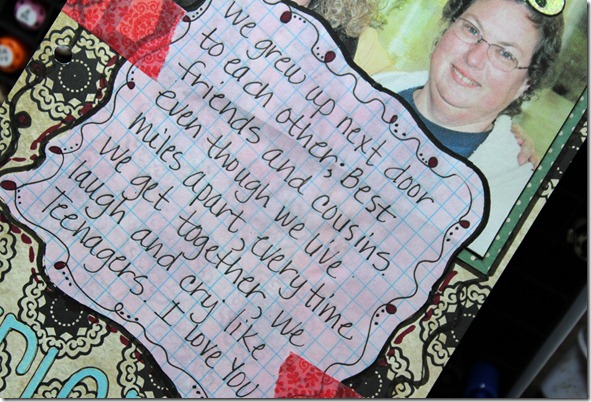 We grew up next door
to each other; Best
friends and cousins.
even though we live
miles apart, everytime
we get together, we
laugh and cry like
Teenagers. I love You